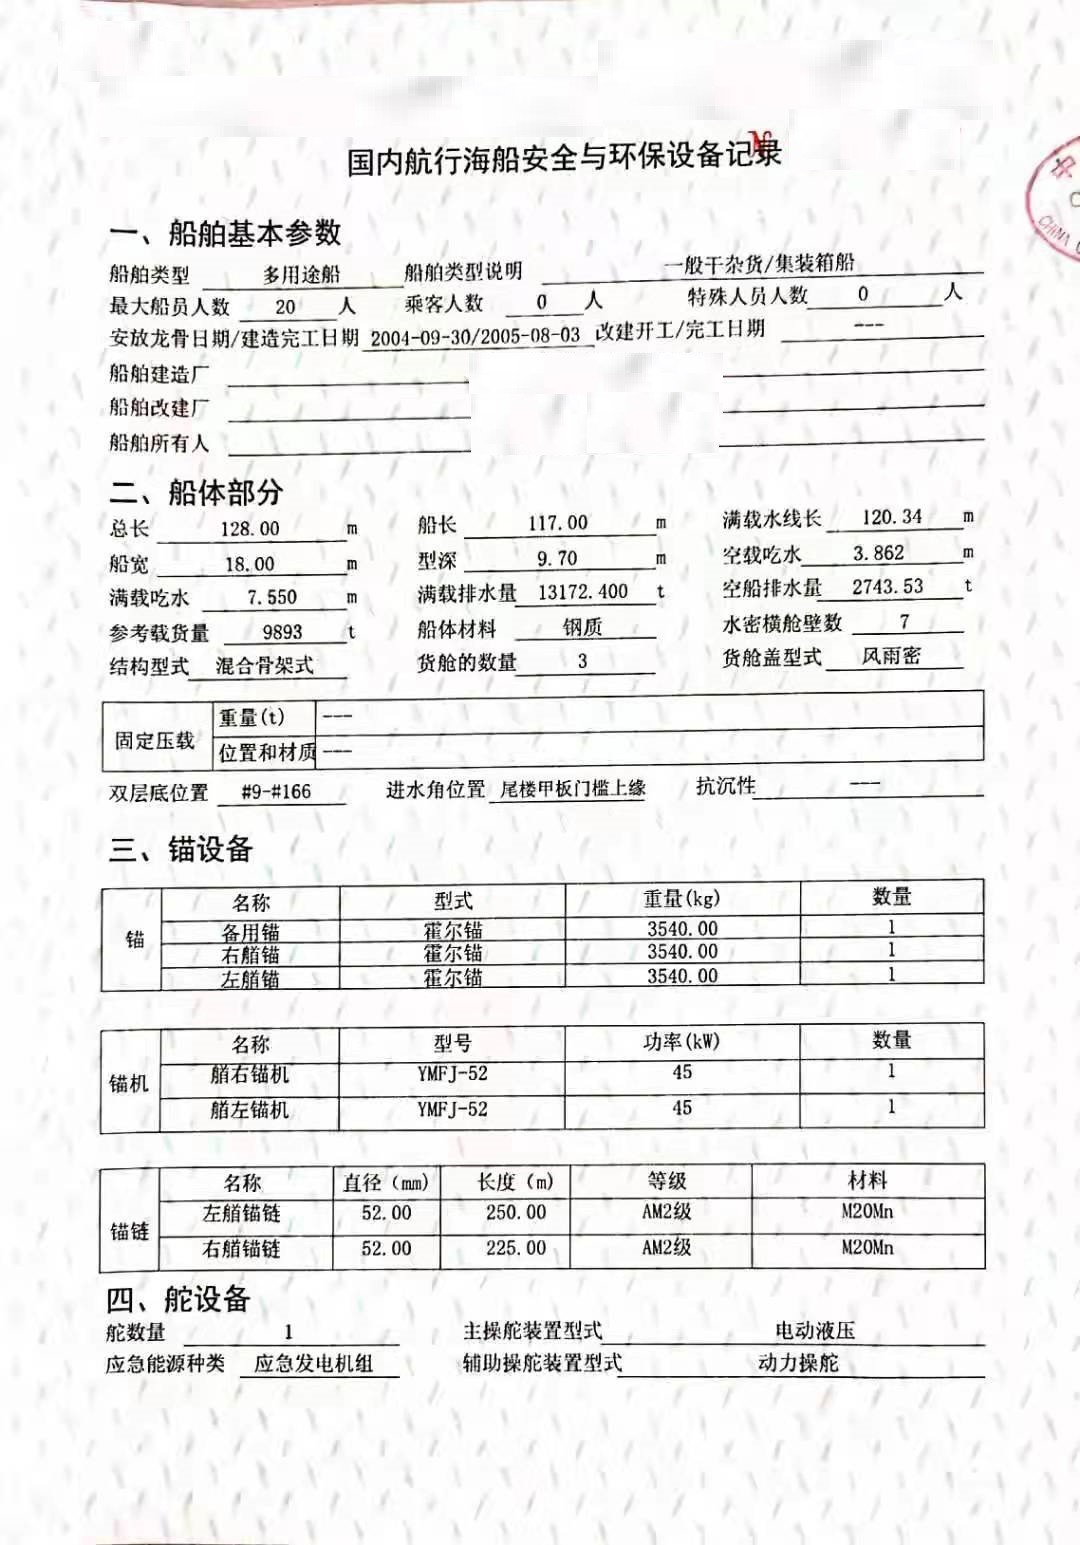 国内航行海船安全与环保设备记录
中
CHINA
一、船舶基本参数
船舶类型 多用途船 船舶类型说明 一般干杂货/集装箱船
最大船员人数 20 人 乘客人数 0 人 特殊人员人数 0 人
安放龙骨日期/建造完工日期 2004-09-30/2005-08-03 改建开工/完工日期 ---
船舶建造厂
船舶改建厂
船舶所有人
二、船体部分
总长 128.00 m 船长 117.00 m 满载水线长 120.34 m
船宽 18.00 m 型深 9.70 m 空载吃水 3.862 m
满载吃水 7.550 m 满载排水量 13172.400 t 空船排水量 2743.53 t
参考载货量 9893 t 船体材料 钢质 水密横舱壁数 7
结构型式 混合骨架式 货舱的数量 3 货舱盖型式 风雨密
固定压载 重量(t) ---
位置和材质 ---
双层底位置 #9-#166 进水角位置 尾楼甲板门槛上缘 抗沉性 ---
三、锚设备
锚 名称 型式 重量(kg) 数量
备用锚 霍尔锚 3540.00 1
右艏锚 霍尔锚 3540.00 1
左艏锚 霍尔锚 3540.00 1
锚机 名称 型号 功率(kW) 数量
艏右锚机 YMFJ-52 45 1
艏左锚机 YMFJ-52 45 1
锚链 名称 直径（mm） 长度（m） 等级 材料
左艏锚链 52.00 250.00 AM2级 M20Mn
右艏锚链 52.00 225.00 AM2级 M20Mn
四、舵设备
舵数量 1 主操舵装置型式 电动液压
应急能源种类 应急发电机组 辅助操舵装置型式 动力操舵